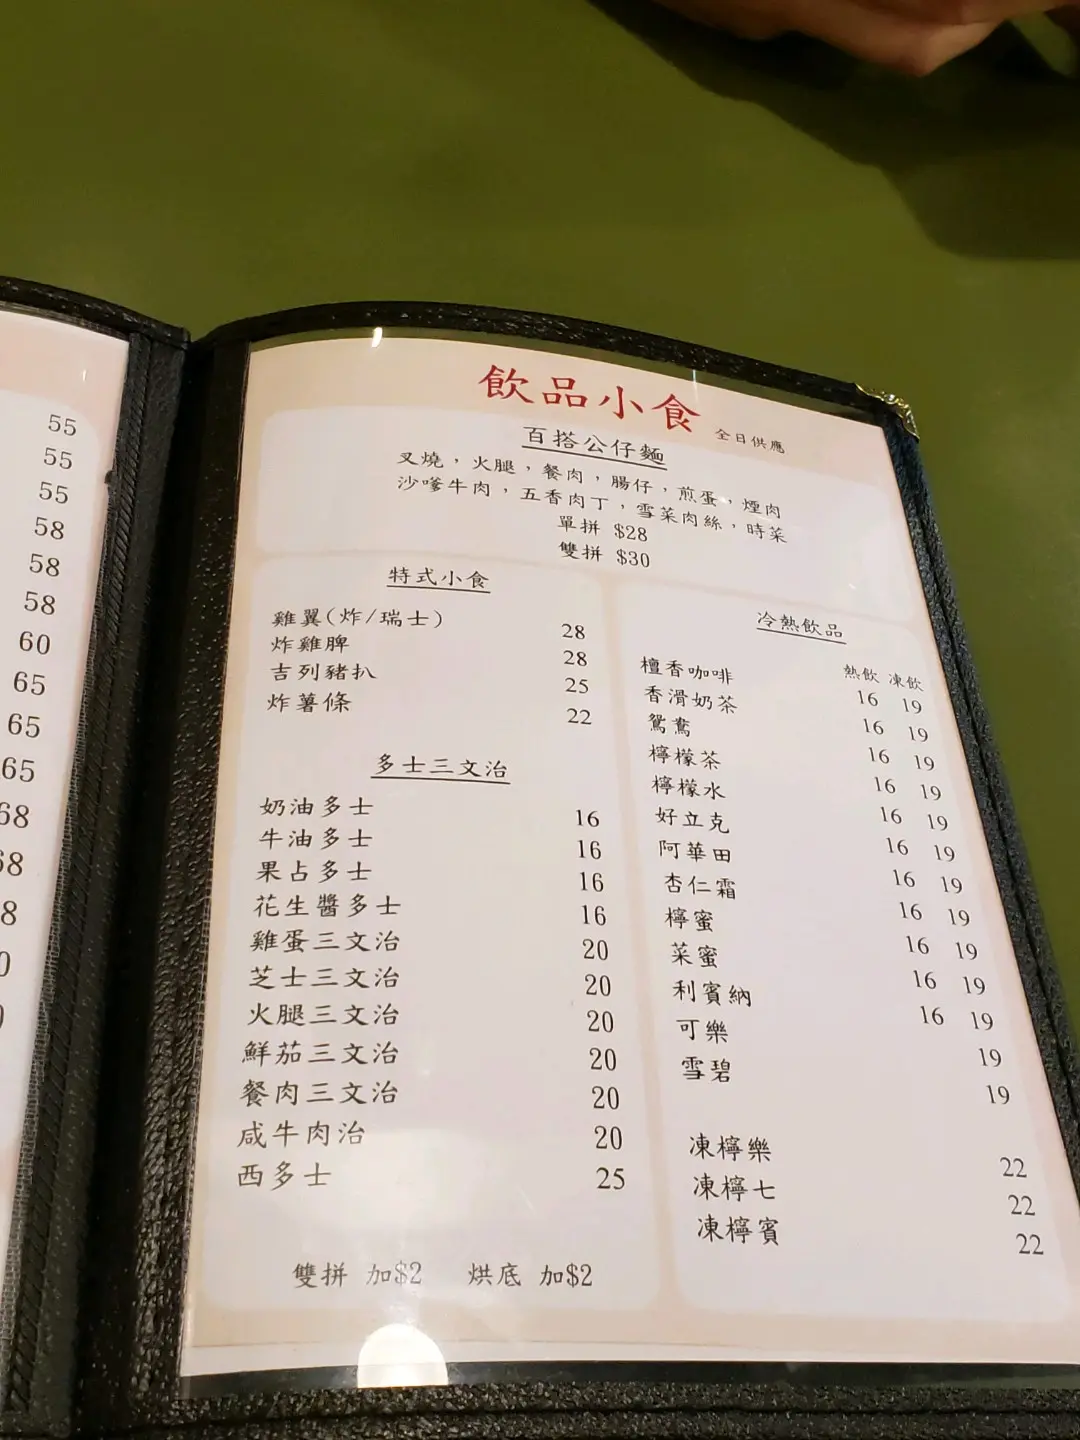 55
55
55
58
58
58
60
65
65
65
68
飲品小食 全日供應
百搭公仔麵
叉燒，火腿，餐肉，腸仔，煎蛋，煙肉
沙嗲牛肉，五香肉丁，雪菜肉絲，時菜
單拼 $28
雙拼 $30
特式小食
雞翼(炸/瑞士) 28
炸雞脾 28
吉列豬扒 25
炸薯條 22
多士三文治
奶油多士 16
牛油多士 16
果占多士 16
花生醬多士 16
雞蛋三文治 20
芝士三文治 20
火腿三文治 20
鮮茄三文治 20
餐肉三文治 20
咸牛肉治 20
西多士 25
雙拼 加$2 烘底 加$2
冷熱飲品
熱飲 凍飲
檀香咖啡 16 19
香滑奶茶 16 19
鴛鴦 16 19
檸檬茶 16 19
檸檬水 16 19
好立克 16 19
阿華田 16 19
杏仁霜 16 19
檸蜜 16 19
菜蜜 16 19
利賓納 16 19
可樂 19
雪碧 19
凍檸樂 22
凍檸七 22
凍檸賓 22